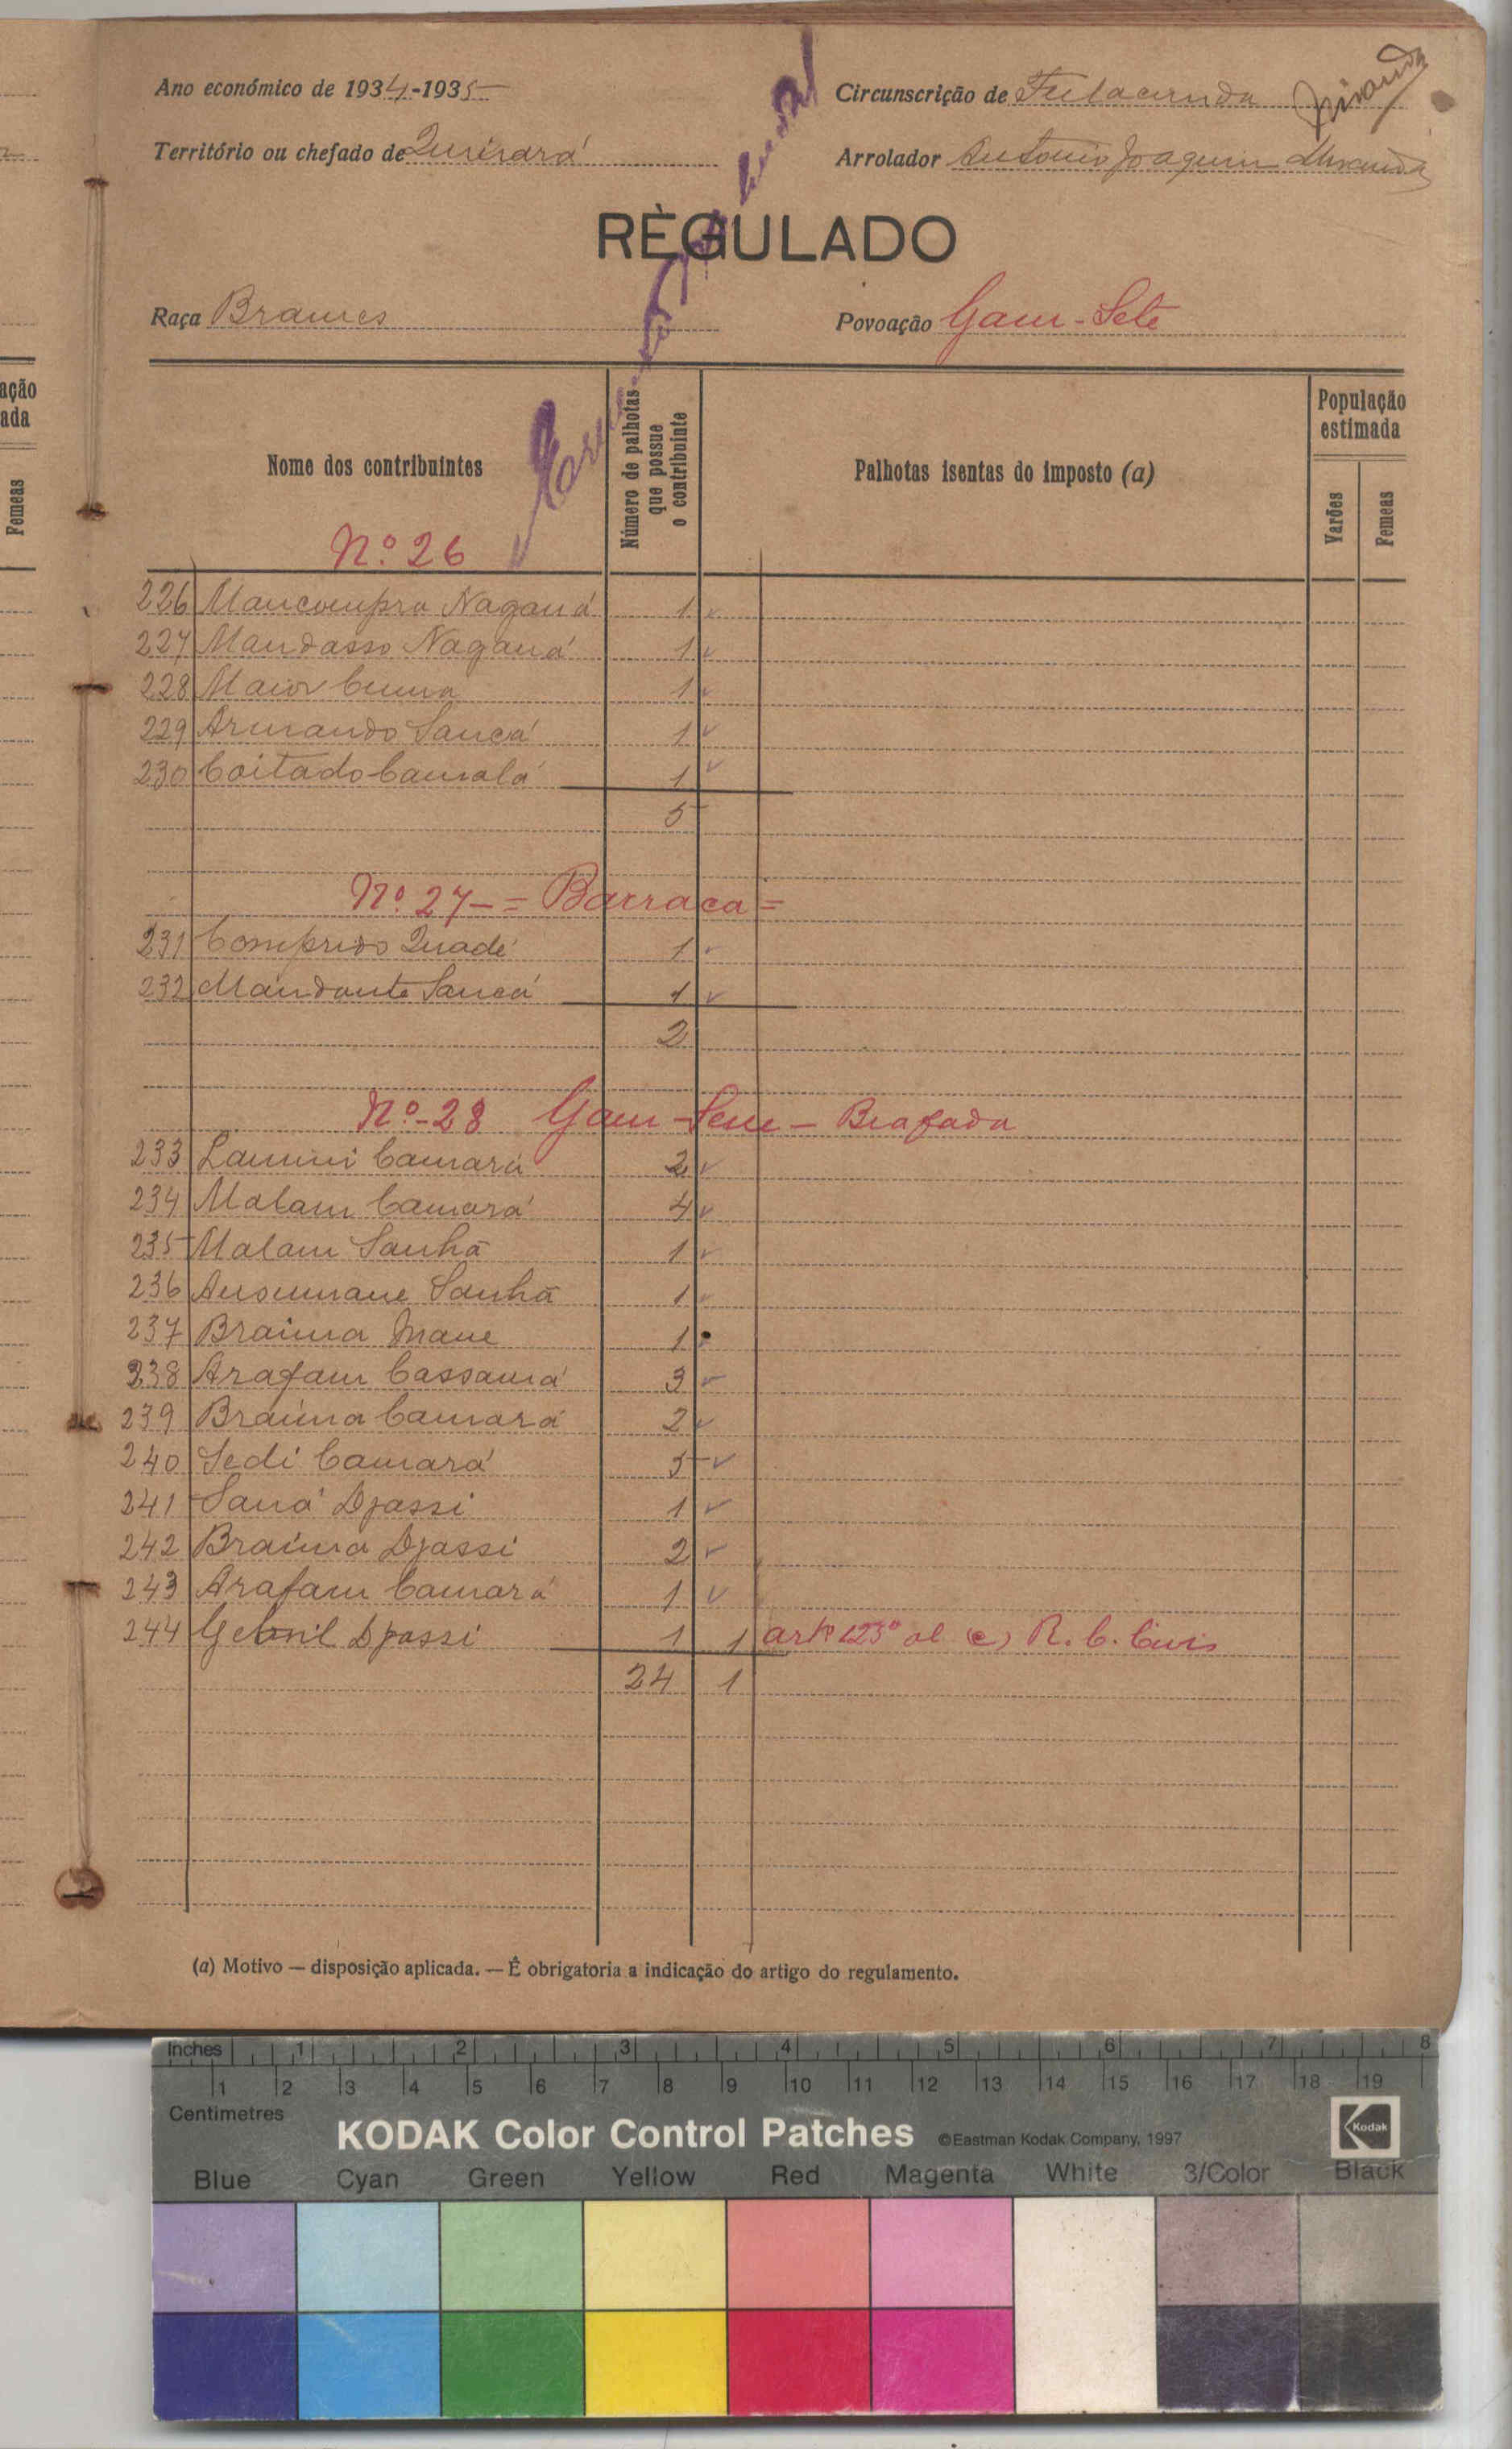 Ano económico de 1934-1935
Circunscrição de Fulacunda
Território ou chefado de Quinará
Arrolador Antonio Joaquim Miranda
Miranda
RÈGULADO
Raça Brames
Povoação Gam-Sete
Nome dos contribuintes
Número de palhotas que possue o contribuinte
Palhotas isentas do imposto (a)
População estimada
Varões
Femeas
Nº 26
226 Mancompra Naganá 1
227 Mandasso Naganá 1
228 Maior 1
229 Armando Sancá 1
230 Coitado Camalá 1
5
Nº 27 - = Barraca =
231 Comprido Quadé 1
232 Mandante Sancá 1
2
Nº-28 Gam-Sene - Biafada
233 Lamini Camará 2
234 Malam Camará 4
235 Malam Sanhã 1
236 Ansumane Sanhã 1
237 Braima Mane 1
238 Arafam Cassamá 3
239 Braima Camará 2
240 Sedi Camará 5
241 Saná Djassi 1
242 Braima Djassi 2
243 Arafam Camará 1
244 Djassi 1 1 artº 123º al (c) R. C. Civis
24 1
(a) Motivo — disposição aplicada. — É obrigatoria a indicação do artigo do regulamento.
ação
ada
Femeas
Inches 1 2 3 4 5 6 7 8
1 2 3 4 5 6 7 8 9 10 11 12 13 14 15 16 17 18 19
Centimetres
KODAK Color Control Patches ©Eastman Kodak Company, 1997 Kodak
Blue Cyan Green Yellow Red Magenta White 3/Color Black